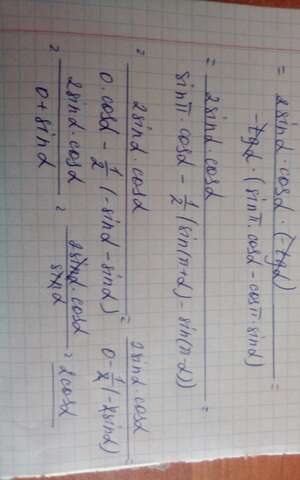 = 2sinα · cosα · (-tgα) / -tgα · (sinπ · cosα - cosπ · sinα) =
= 2sinα · cosα / sinπ · cosα - 1/2 (sin(π+α) - sin(π-α)) =
= 2sinα · cosα / 0 · cosα - 1/2 (-sinα - sinα) = 2sinα · cosα / 0 - 1/2 (-2sinα) =
= 2sinα · cosα / 0 + sinα = 2sinα · cosα / sinα = 2cosα